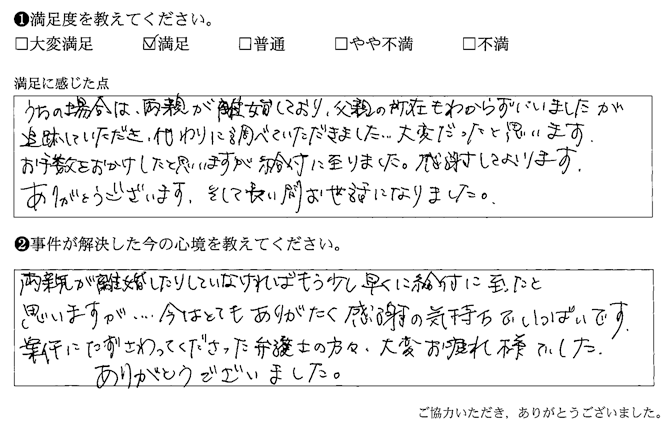 ❶満足度を教えてください。
□大変満足 ☑満足 □普通 □やや不満 □不満
満足に感じた点
うちの場合は、両親が離婚しており、父親の所在もわからずにいましたが
追跡していただき、代わりに調べていただきました…大変だったと思います.
お手数をおかけしたと思いますが給付に至りました。感謝しております.
ありがとうございます. そして長い間お世話になりました。
❷事件が解決した今の心境を教えてください。
両親が離婚したりしていなければもう少し早くに給付に至ったと
思いますが…今はとてもありがたく感謝の気持ちでいっぱいです.
案件にたずさわってくださった弁護士の方々、大変お疲れ様でした.
ありがとうございました。
ご協力いただき，ありがとうございました。